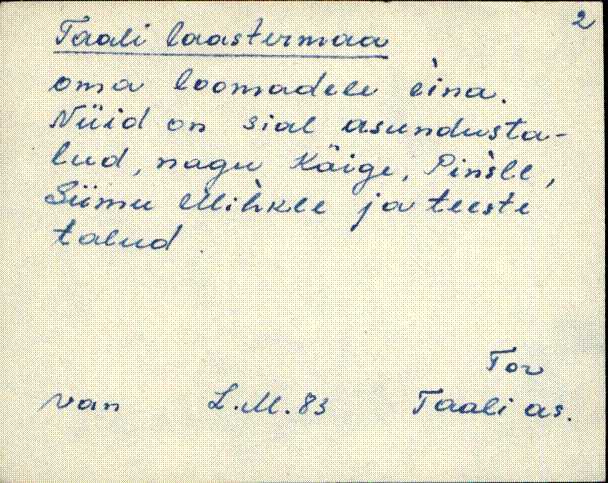 2
Taali laastermaa
oma loomadele eina.
Nüid on sial asundusta-
lud, nagu Käige, Pinsle,
Siimu Mihkle ja teeste
talud.
Tor
van L.M.83 Taali as.